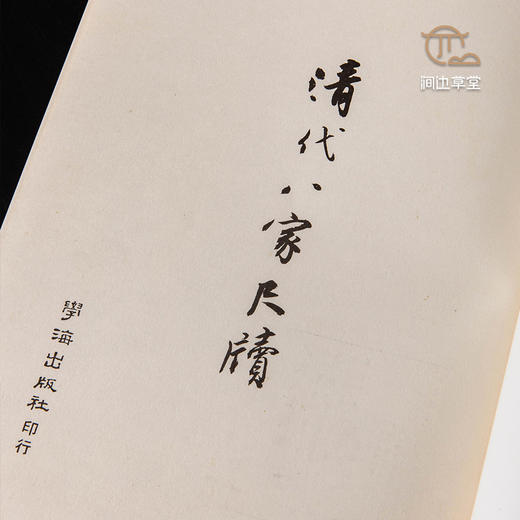 清代八家尺牘
學海出版社印行
涧边草堂